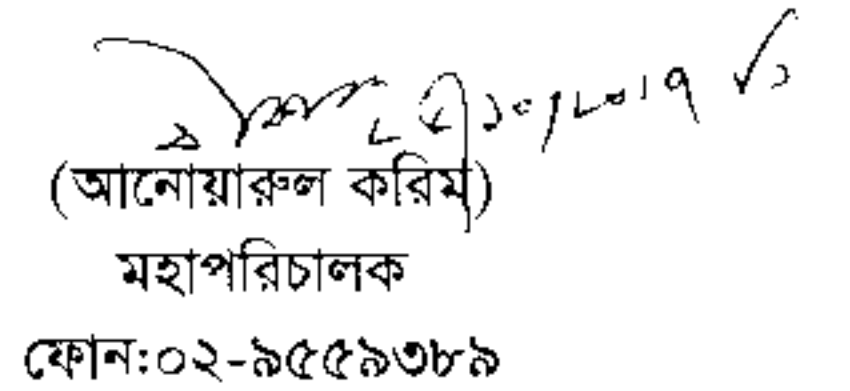 (আনোয়ারুল করিম)
মহাপরিচালক
ফোন:০২-৯৫৫৯৩৮৯